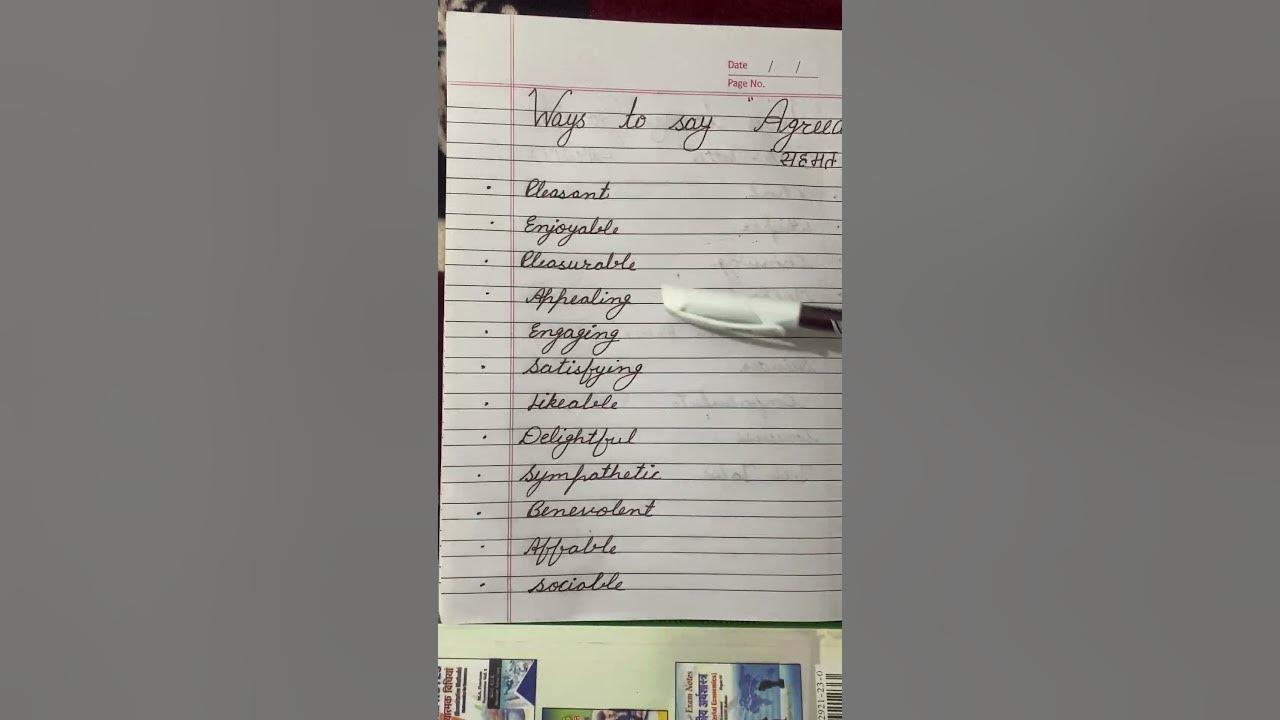 Date / /
Page No.
Ways to say "Agreea
सहमत
· Pleasant
· Enjoyable
· Pleasurable
· Appealing
· Engaging
· Satisfying
· Likeable
· Delightful
· Sympathetic
· Benevolent
· Affable
· sociable
Exam Notes
2921-23-0